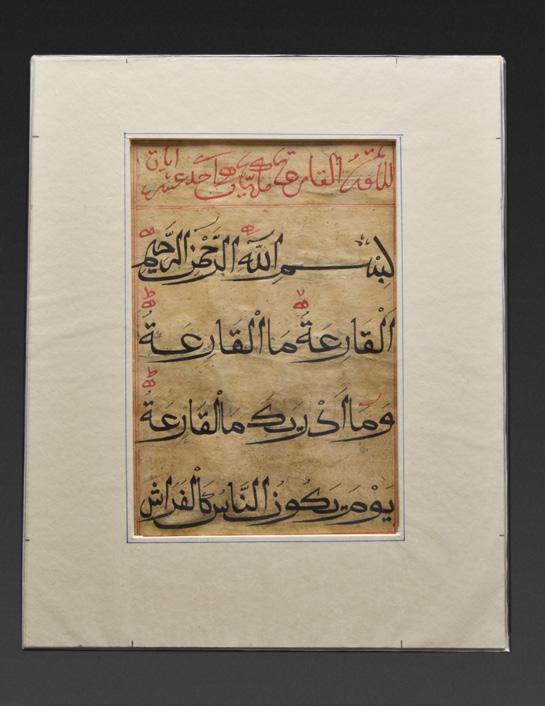 القارعة مكية وهي احد عشر ايات
بِسْمِ اللّٰهِ الرَّحْمٰنِ الرَّحِيمِ
اَلْقَارِعَةُ مَا الْقَارِعَةُ
وَمَا اَدْرٰيكَ مَا الْقَارِعَةُ
يَوْمَ يَكُونُ النَّاسُ كَالْفَرَاشِ